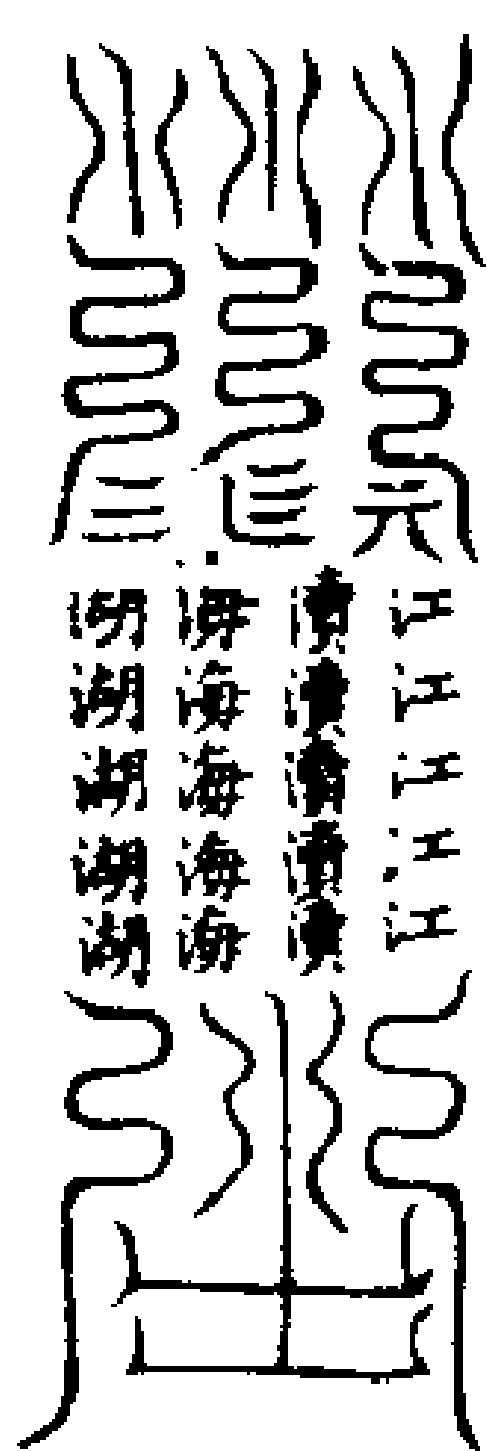 元
三
江江江江江
瀆瀆瀆瀆瀆
海海海海海
湖湖湖湖湖